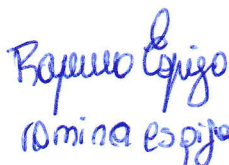 Romina Espigo
romina espijo